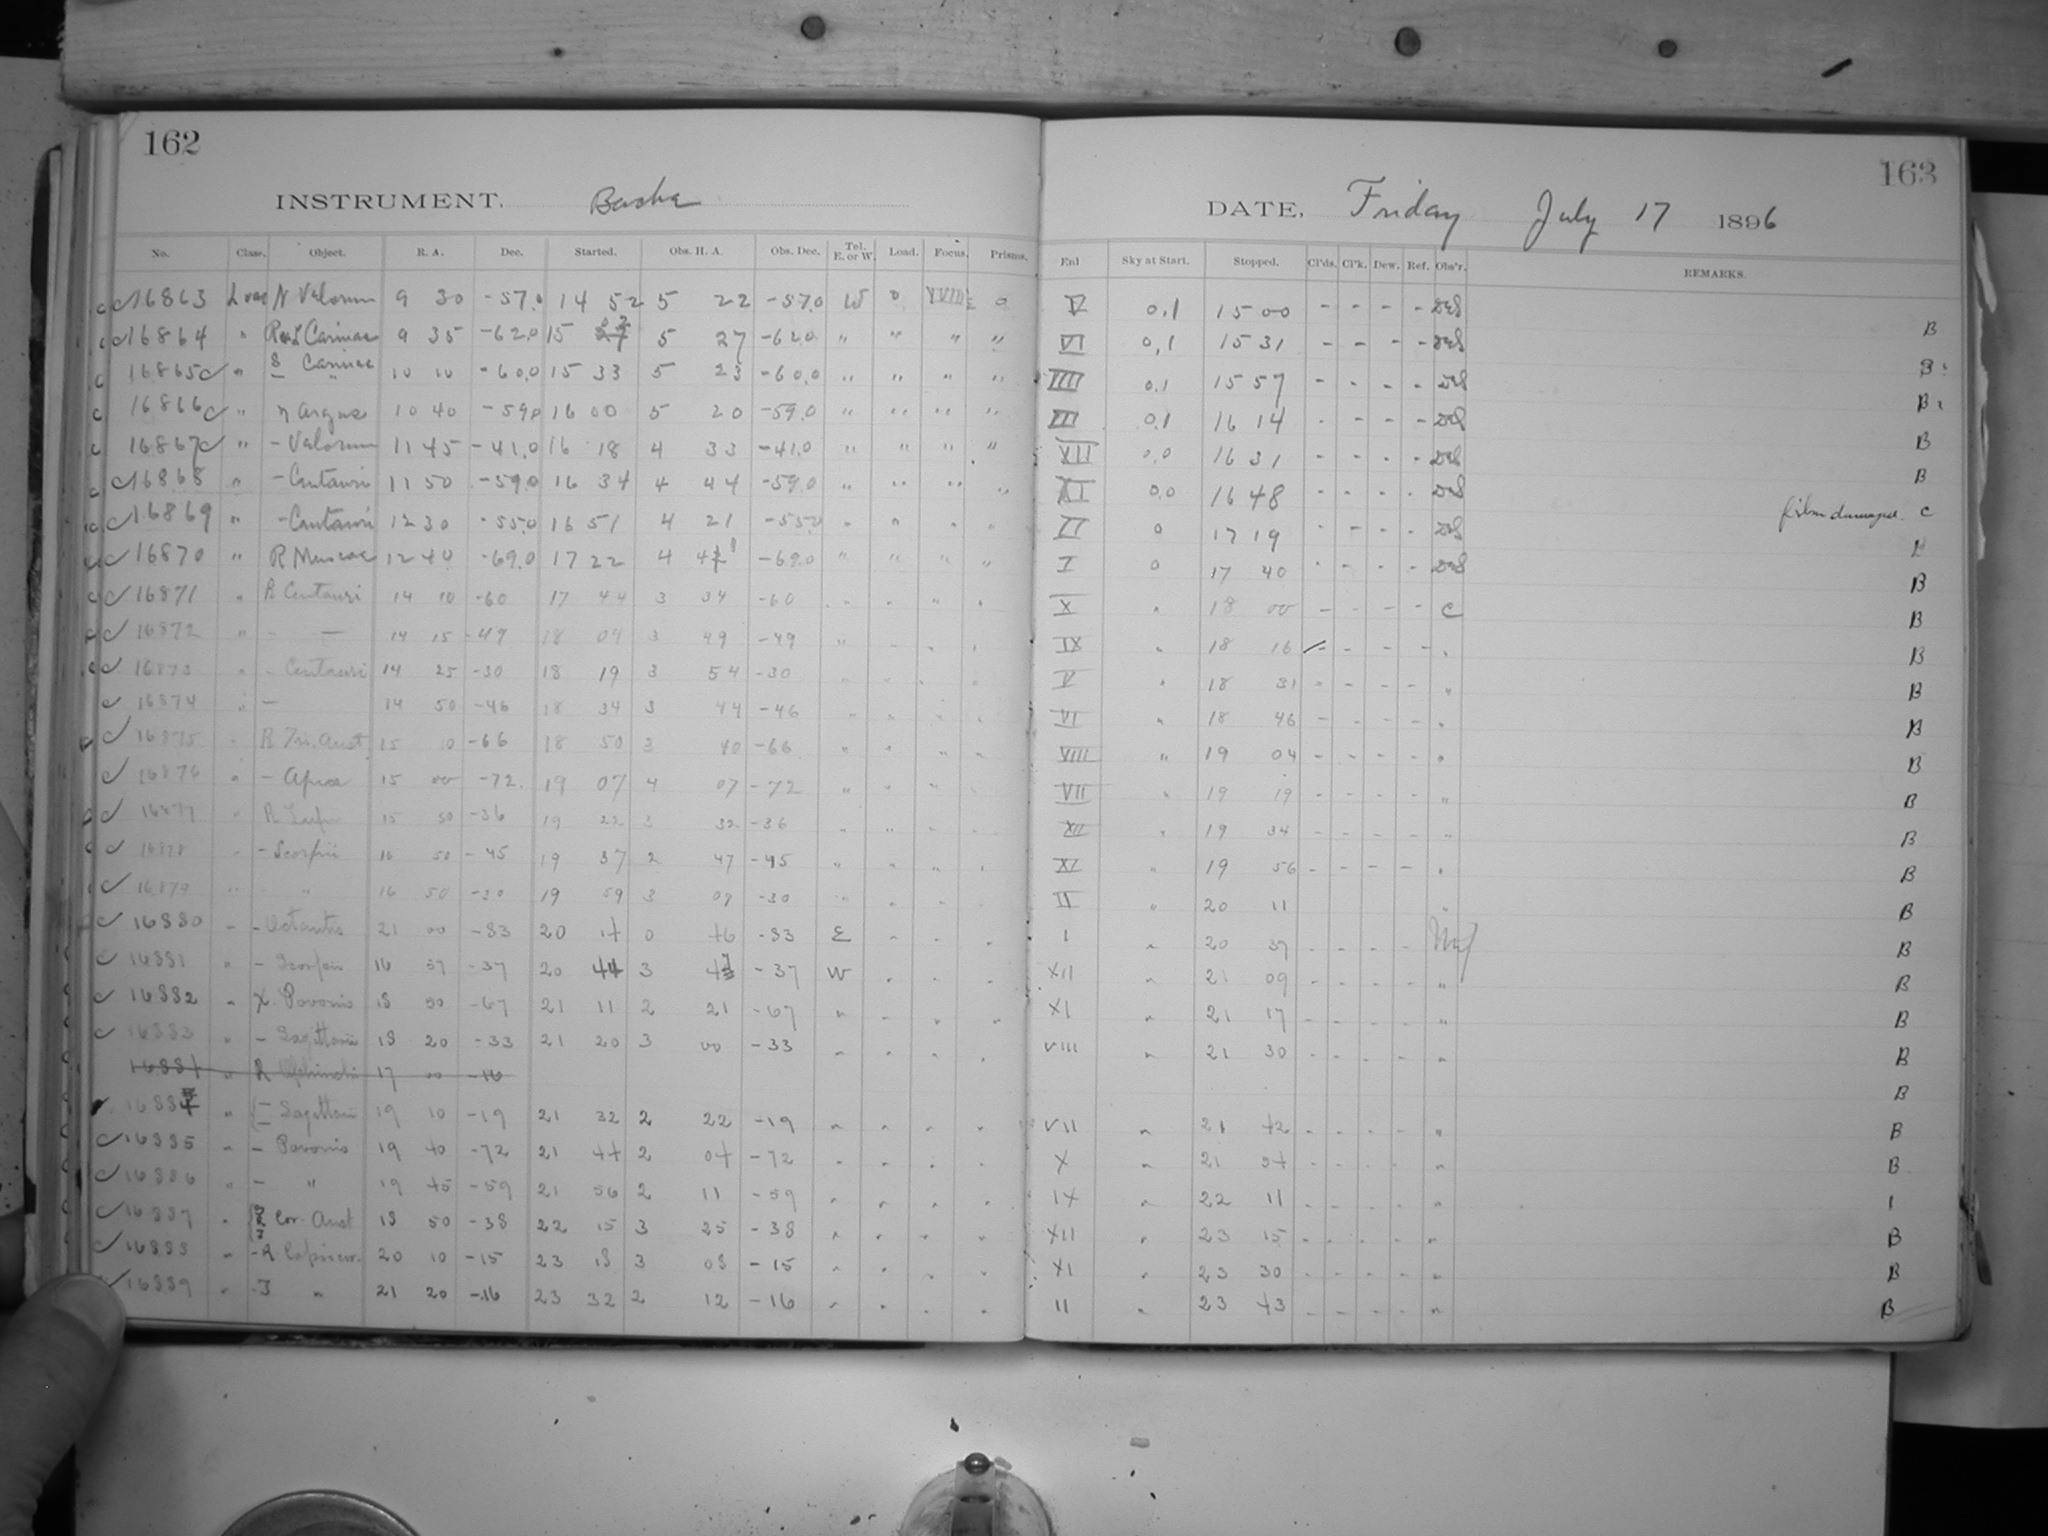 162
163
INSTRUMENT. Bache
DATE, Friday July 17 1896
No. Class. Object. R. A. Dec. Started. Obs. H. A. Obs. Dec. Tel. E. or W. Load. Focus. Prisms. End Sky at Start. Stopped. Cl'ds. Cl'k. Dew. Ref. Obs'r. REMARKS.
16863 N Velorum 9 30 -57.0 14 52 5 22 -57.0 W 0 V 0.1 15 00 - - - -
16864 " R & L Carinae 9 35 -62.0 15 5 27 -62.0 " " " " VI 0.1 15 31 - - - - B
16865 " S Carinae 10 10 -60.0 15 33 5 23 -60.0 " " " " VIII 0.1 15 57 - - - -
16866 " η Argus 10 40 -59.0 16 00 5 20 -59.0 " " " " III 0.1 16 14 - - - -
16867 " - Velorum 11 45 -41.0 16 18 4 33 -41.0 " " " " VII 0.0 16 31 - - - - B
16868 " - Centauri 11 50 -59.0 16 34 4 44 -59.0 " " " " XI 0.0 16 48 - - - - B
16869 " - Centauri 12 30 -55.0 16 51 4 21 -55.0 " " " " 0 17 19 - - - - film damaged. C
16870 " R Muscae 12 40 -69.0 17 22 4 -69.0 " " " " I 0 17 40 - - - -
16871 " R Centauri 14 10 -60 17 44 3 34 -60 " " " " X " 18 00 - - - - C B
16872 " - — 14 15 -49 18 04 3 49 -49 " " " " IX " 18 16 - - - - " B
16873 " - Centauri 14 25 -30 18 19 3 54 -30 " " " " V " 18 31 - - - - " B
16874 " - 14 50 -46 18 34 3 44 -46 " " " " VI " 18 46 - - - - " B
16875 " R Tri. Aust. 15 10 -66 18 50 3 40 -66 " " " " VIII " 19 04 - - - - " B
16876 " - Apus 15 00 -72. 19 07 4 07 -72 " " " " VII " 19 19 - - - - " B
16877 " R Lupi 15 50 -36 19 22 3 32 -36 " " " " XII " 19 34 - - - - " B
16878 " - Scorpii 16 50 -45 19 37 2 47 -45 " " " " XI " 19 56 - - - - " B
16879 " - " 16 50 -30 19 59 3 09 -30 " " " " II " 20 11 " B
16880 " - Octantis 21 00 -83 20 14 0 46 -83 E " " " I " 20 37 - - - - B
16881 " - Scorpii 16 57 -37 20 44 3 -37 W " " " XII " 21 09 - - - - " B
16882 " X. Pavonis 18 50 -67 21 11 2 21 -67 " " " " XI " 21 17 - - - - " B
16883 " - Sagittarii 18 20 -33 21 20 3 00 -33 " " " " VIII " 21 30 - - - - " B
16884 " R Ophiuchi 17 00 -16 B
16884 " Sagittarii 19 10 -19 21 32 2 22 -19 " " " " VII " 21 42 - - - - " B
16885 " - Pavonis 19 40 -72 21 44 2 04 -72 " " " " X " 21 54 - - - - " B
16886 " - " 19 45 -59 21 56 2 11 -59 " " " " IX " 22 11 - - - - "
16887 " Cor. Aust 18 50 -38 22 15 3 25 -38 " " " " XII " 23 15 - - - - " B
16888 " - R Capricor. 20 10 -15 23 18 3 08 -15 " " " " XI " 23 30 - - - - " B
16889 " - T " 21 20 -16 23 32 2 12 -16 " " " " II " 23 43 - - - - " B